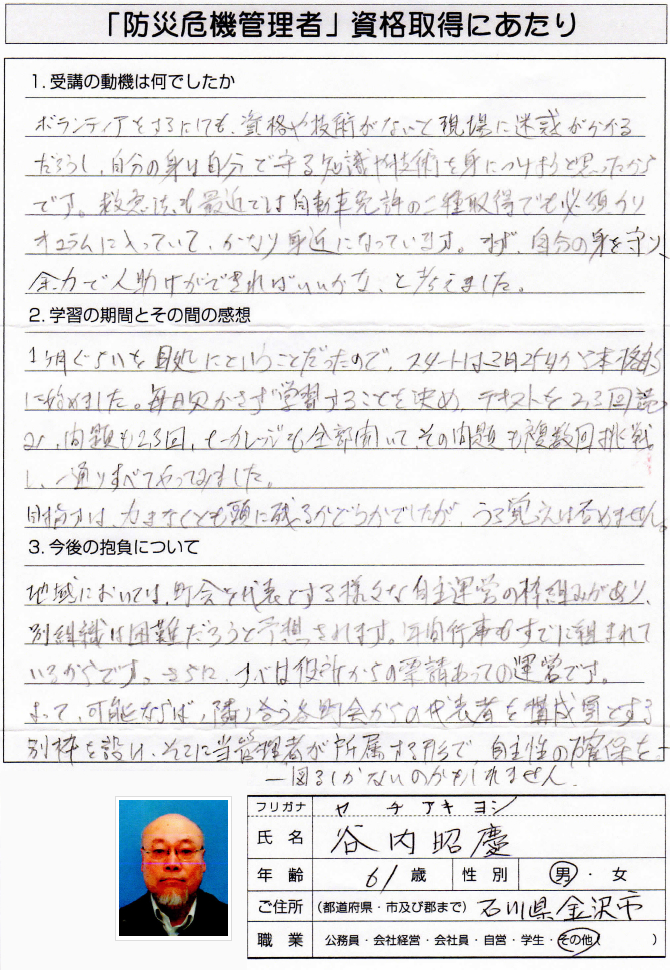 「防災危機管理者」資格取得にあたり
1. 受講の動機は何でしたか
ボランティアをするにしても、資格や技術がないと現場に迷惑がかかる
だろうし、自分の身は自分で守る知識や技術を身につけようと思ったから
です。救急法も最近では自動車免許の二種取得でも必須カリ
キュラムに入っていて、かなり身近になっています。まず、自分の身を守り、
余力で人助けができればいいかな、と考えました。
2. 学習の期間とその間の感想
1ヶ月ぐらいを目処にということだったので、スタートは2月25日から本格的
に始めました。毎日欠かさず学習することを決め、テキストを2,3回読
み、問題も2,3回、カレッジも全部開いて、その問題も複数回挑戦
し、一通りすべてやってみました。
は、力まなくとも頭に残るかどうかでしたが、うろ覚えは否めません。
3. 今後の抱負について
地域においては、町会を代表とする様々な自主運営の枠組みがあり、
別組織は困難だろうと予想されます。年間行事もすでに組まれて
いるからです。さらに、すべては役所からの要請あっての運営です。
よって、可能ならば、隣り合う各町会からの代表者を構成員とする
別枠を設け、そこに当管理者が所属する形で、自主性の確保を
図るしかないのかもしれません。
フリガナ ヤ チ アキ ヨシ
氏名 谷内昭慶
年齢 61歳 性別 男・女
ご住所 (都道府県・市及び郡まで) 石川県金沢市
職業 公務員・会社経営・会社員・自営・学生・その他( )